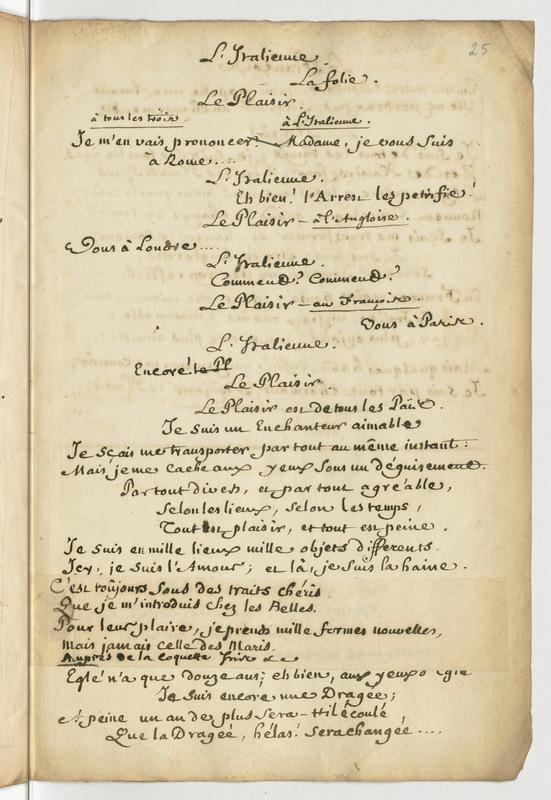 25
L'Italienne.
La folie.
Le Plaisir.
à tous les trois. à L'Italienne.
Je m'en vais prononcer. Madame, je vous suis
à Rome....
L'Italienne.
Eh bien! l'Arrest les petrifie!
Le Plaisir - à l'Angloise.
Vous à Londre....
L'Italienne.
Commend? Commend?
Le Plaisir - au François.
Vous à Paris.
L'Italienne.
Encoré! le Pl
Le Plaisir.
Le Plaisir est de tous les Païs.
Je suis un Enchanteur aimable
Je sçais me transporter par tout au même instant:
Mais je me cache aux yeux sous un déguisement.
Partout divers, et par tout agréable,
selon les lieux, selon les temps,
Tout est plaisir, et tout est peine.
Je suis en mille lieux mille objets differents.
Icy, je suis l'Amour; et là, je suis la haine.
C'est toûjours sous des traits chéris
Que je m'introduis chez les Belles.
Pour leur plaire, je prends mille formes nouvelles,
Mais jamais celle des Maris.
Auprès de la coquette
Eglé n'a que douze ans; eh bien, aux yeux
Je suis encore une Dragée;
Et peine un an de plus sera-t-il écoulé
Que la Dragée, hélas! sera changée....